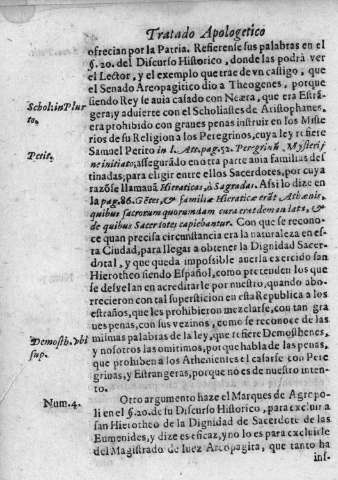 Tratado Apologetico
ofrecian por la Patria. Refierense sus palabras en el
§. 20. del Discurso Historico, donde las podrà ver
el Lector, y el exemplo que trae de vn castigo, que
el Senado Areopagitico dio a Theogenes, porque
siendo Rey se auia casado con Neæra, que era Estrã-
Schol. in Plut
to.
gera, y aduierte con el Scholiastes de Aristophanes,
era prohibido con graues penas instruir en los Miste-
rios de su Religion a los Peregrinos, cuya ley refiere
Petit.
Samuel Petito in l. Atc. pag. 52. Peregrinũ Mysterijs
ne initiato; assegurãdo en otra parte auia familias des
tinadas, para eligir entre ellos Sacerdotes, por cuya
razõ se llamauã Hieraticas, ò Sagradas. Assi lo dize en
la pag. 86. Gẽtes, & familiæ Hieraticæ erãt Athænis,
quibus sacrorum quorumdam cura erat demandata, &
de quibus Sacerdotes capiebantur. Con que se recono-
ce quan precisa circunstancia era la naturaleza en es-
ta Ciudad, para llegar a obtener la Dignidad Sacer-
dotal, y que queda impossible auerla exercido san
Hierotheo siendo Español, como pretenden los que
se desvelan en acreditarle por nuestro, quando abo-
rrecieron con tal supersticion en esta Republica a los
estraños, que les prohibieron mezclarse, con tan gra
ues penas, con sus vezinos, como se reconoce de las
Demosth. vbi
sup.
mismas palabras de la ley, que refiere Demosthenes,
y nosotros las omitimos, por que habla de las penas,
que prohiben a los Athenienses el casarse con Pere
grinas, y Estrangeras, porque no es de nuestro inten-
to.
Num. 4.
Otro argumento haze el Marques de Agropo-
li en el §. 20. de su Discurso Historico, para excluir a
san Hierotheo de la Dignidad de Sacerdote de las
Eumenides, y dize es eficaz, y no lo es para excluirle
del Magistrado de Iuez Areopagita, que tanto ha
ins-